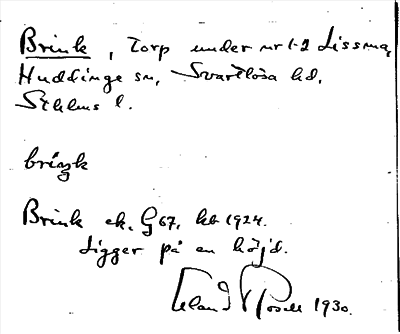 Brink, torp under nr 1-2 Lissma,
Huddinge sn, Svartlösa hd,
Sthlms l.
briŋk
Brink ek. G 67, kb 1924.
Ligger på en höjd.
1930.